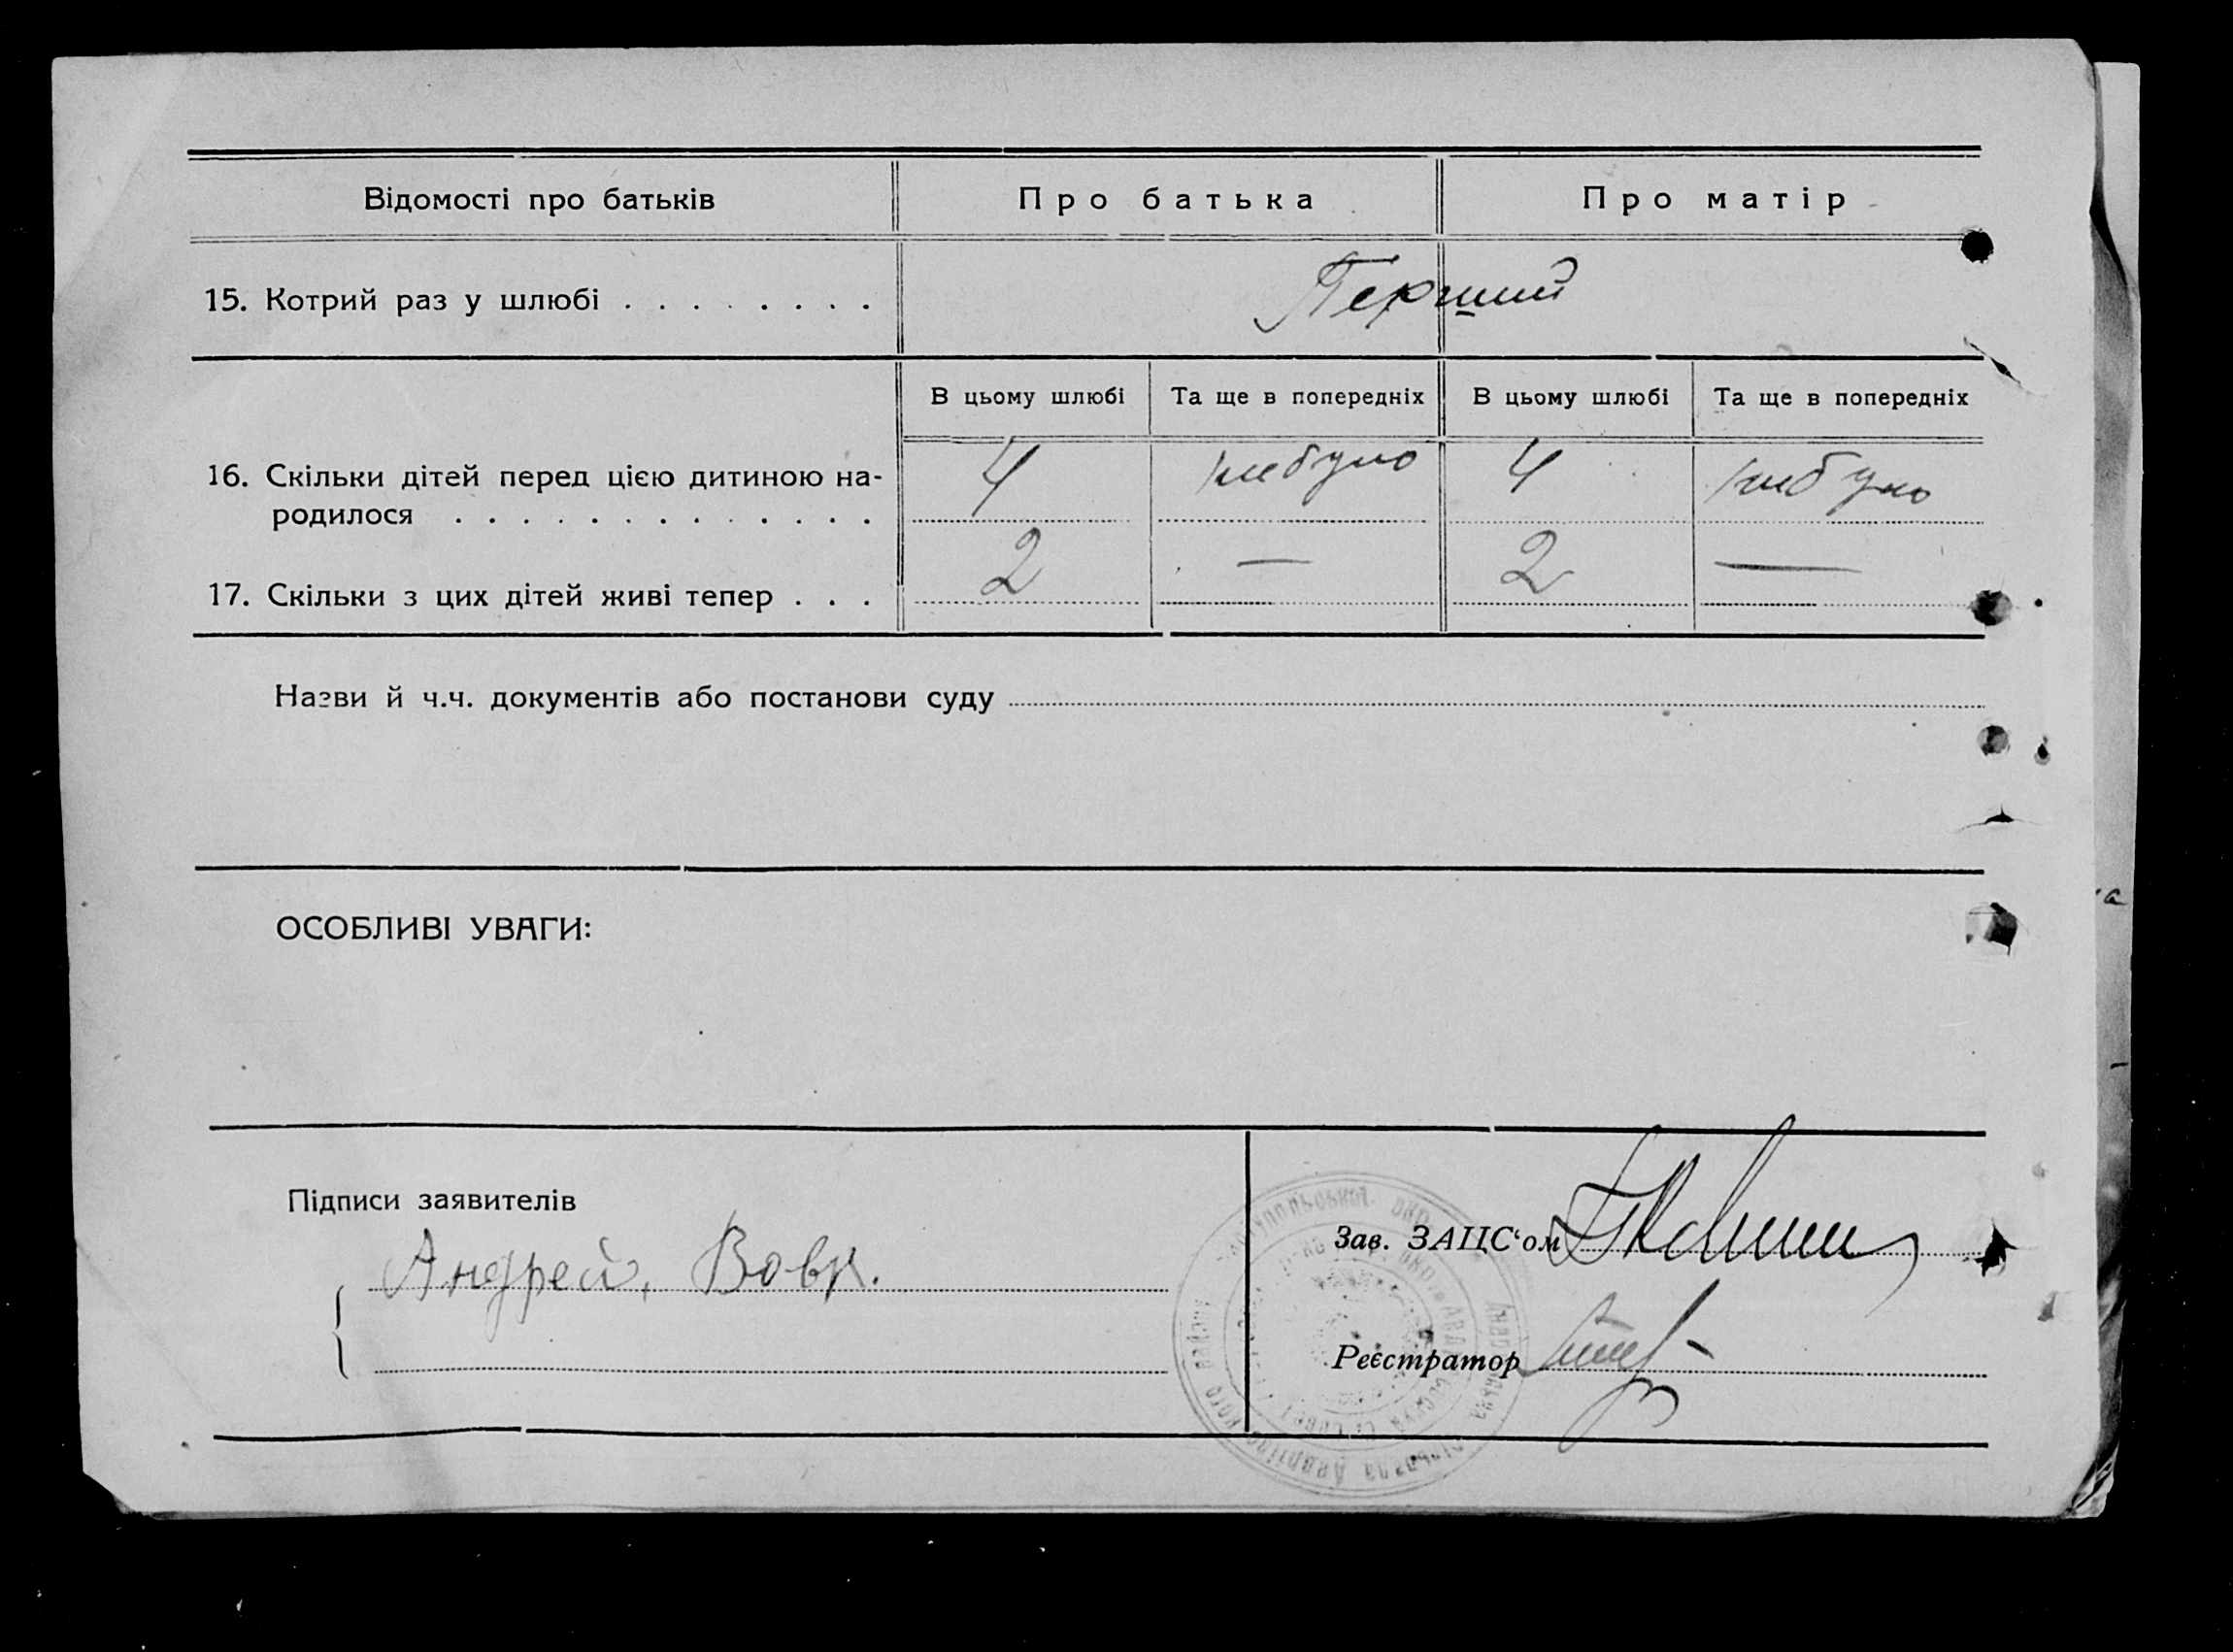 Відомості про батьків
Про батька
Про матір
15. Котрий раз у шлюбі . . . . . . . .
Перший
В цьому шлюбі
Та ще в попередніх
В цьому шлюбі
Та ще в попередніх
16. Скільки дітей перед цією дитиною на-
родилося . . . . . . . . . . . . .
4
небуло
4
небуло
17. Скільки з цих дітей живі тепер . . .
2
—
2
—
Назви й ч.ч. документів або постанови суду
ОСОБЛИВІ УВАГИ:
Підписи заявителів
Андрей, Вовк.
Зав. ЗАЦС‘ом
Реєстратор